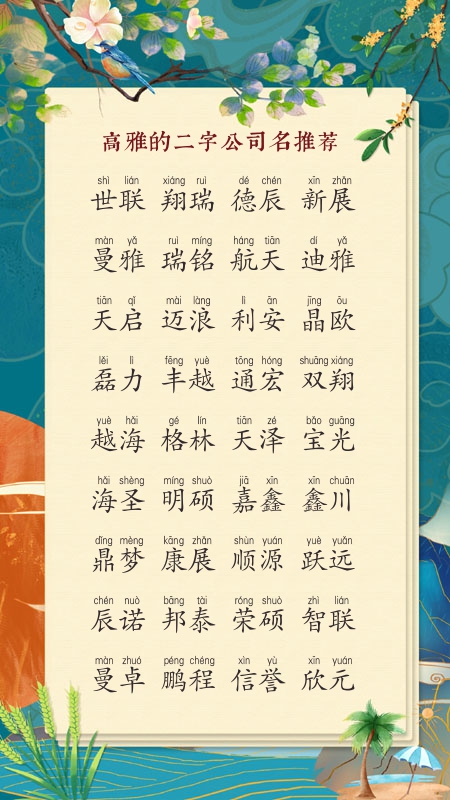 高雅的二字公司名推荐
shì lián xiáng ruì dé chén xīn zhǎn
世联 翔瑞 德辰 新展
màn yǎ ruì míng háng tiān dí yǎ
曼雅 瑞铭 航天 迪雅
tiān qǐ mài làng lì ān jīng ōu
天启 迈浪 利安 晶欧
lěi lì fēng yuè tōng hóng shuāng xiáng
磊力 丰越 通宏 双翔
yuè hǎi gé lín tiān zé bǎo guāng
越海 格林 天泽 宝光
hǎi shèng míng shuò jiā xīn xīn chuān
海圣 明硕 嘉鑫 鑫川
dǐng mèng kāng zhǎn shùn yuán yuè yuǎn
鼎梦 康展 顺源 跃远
chén nuò bāng tài róng shuò zhì lián
辰诺 邦泰 荣硕 智联
màn zhuó péng chéng xìn yù xīn yuán
曼卓 鹏程 信誉 欣元